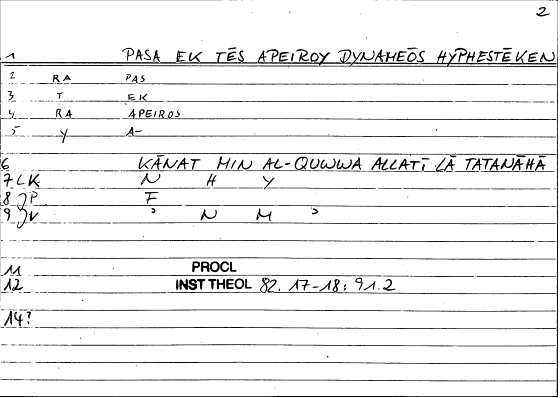 2
1 PASA EK TĒS APEIROY DYNAMEŌS HYPHESTĒKEN
2 RA PAS
3 T EK
4 RA APEIROS
5 Y A-
6 KĀNAT MIN AL-QUWWA ALLATĪ LĀ TATANĀHĀ
7 LK N H Y
8 P F
9 V ʾ N M ʾ
11 PROCL
12 INST THEOL 82. 17-18: 91.2
14?